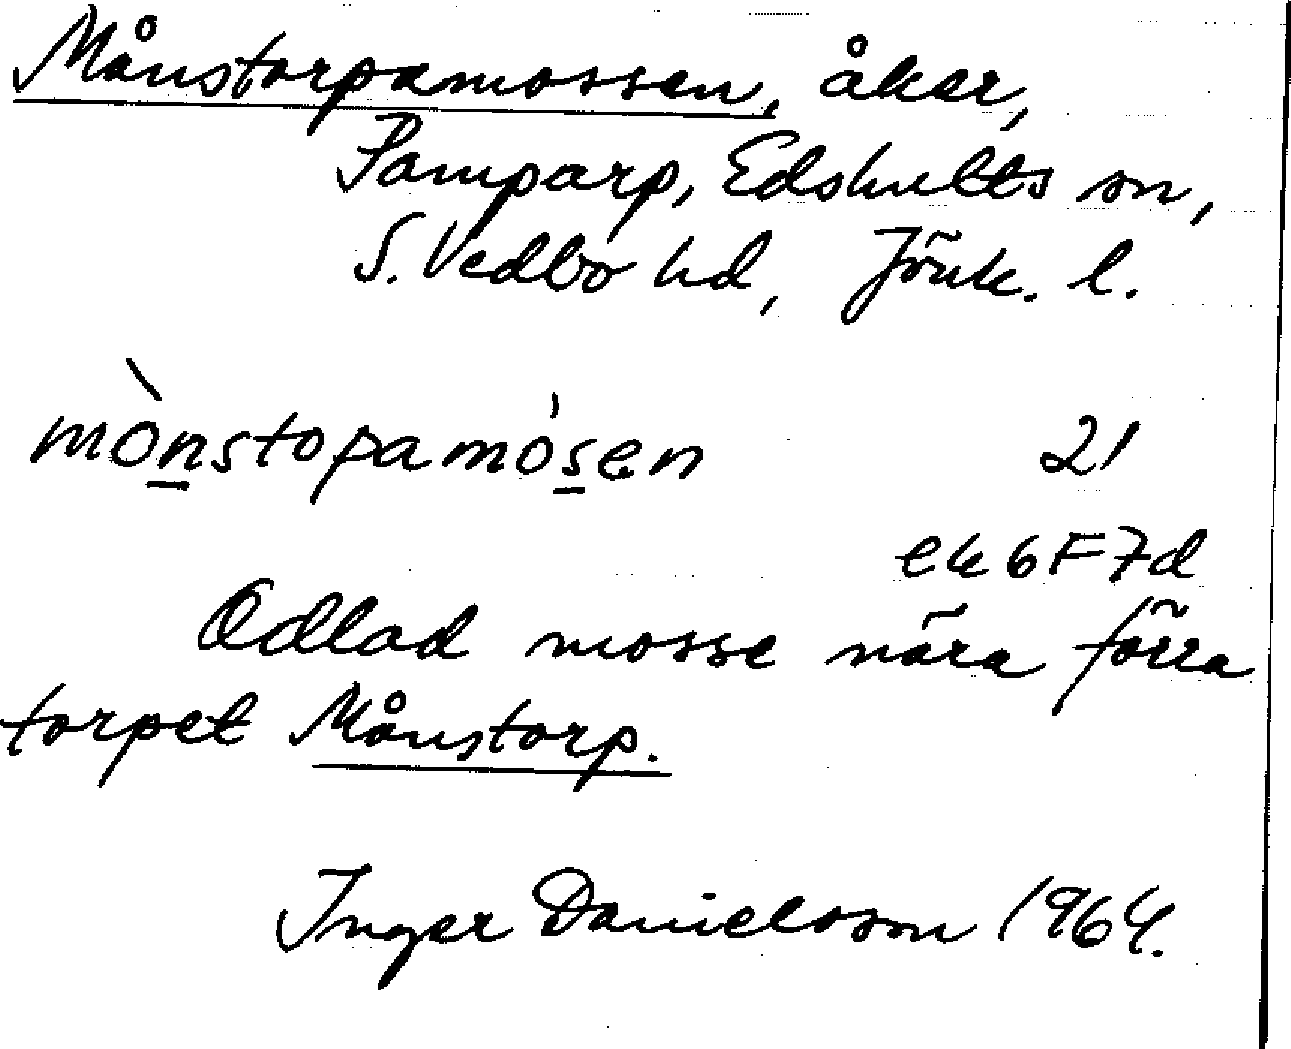 Månstorpamossen, åker,
Pamparp, Edshults sn,
S. Vedbo hd, Jönk. l.
mònstopamósen 21
ek 6F7d
Odlad mosse nära förra
torpet Månstorp.
Inger Danielsson 1964.